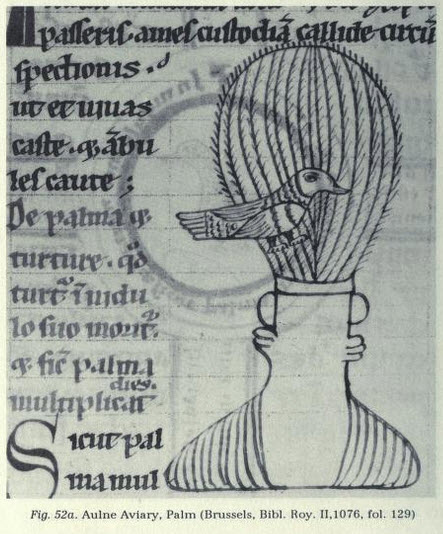 passeris. ames custodiā callide circū
spectionis.
ut et uiuas
caste. & ābu
les caute ;
De palma &
turture. qđ
turt᷑ ī nidu
lo suo morit᷑.
& sic̄ palma
dies.
multiplicat
Sicut pal
ma mul
Fig. 52a. Aulne Aviary, Palm (Brussels, Bibl. Roy. II,1076, fol. 129)